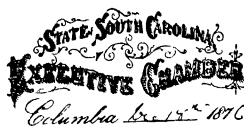 STATE OF SOUTH CAROLINA
EXECUTIVE CHAMBER
Columbia Dec 1876